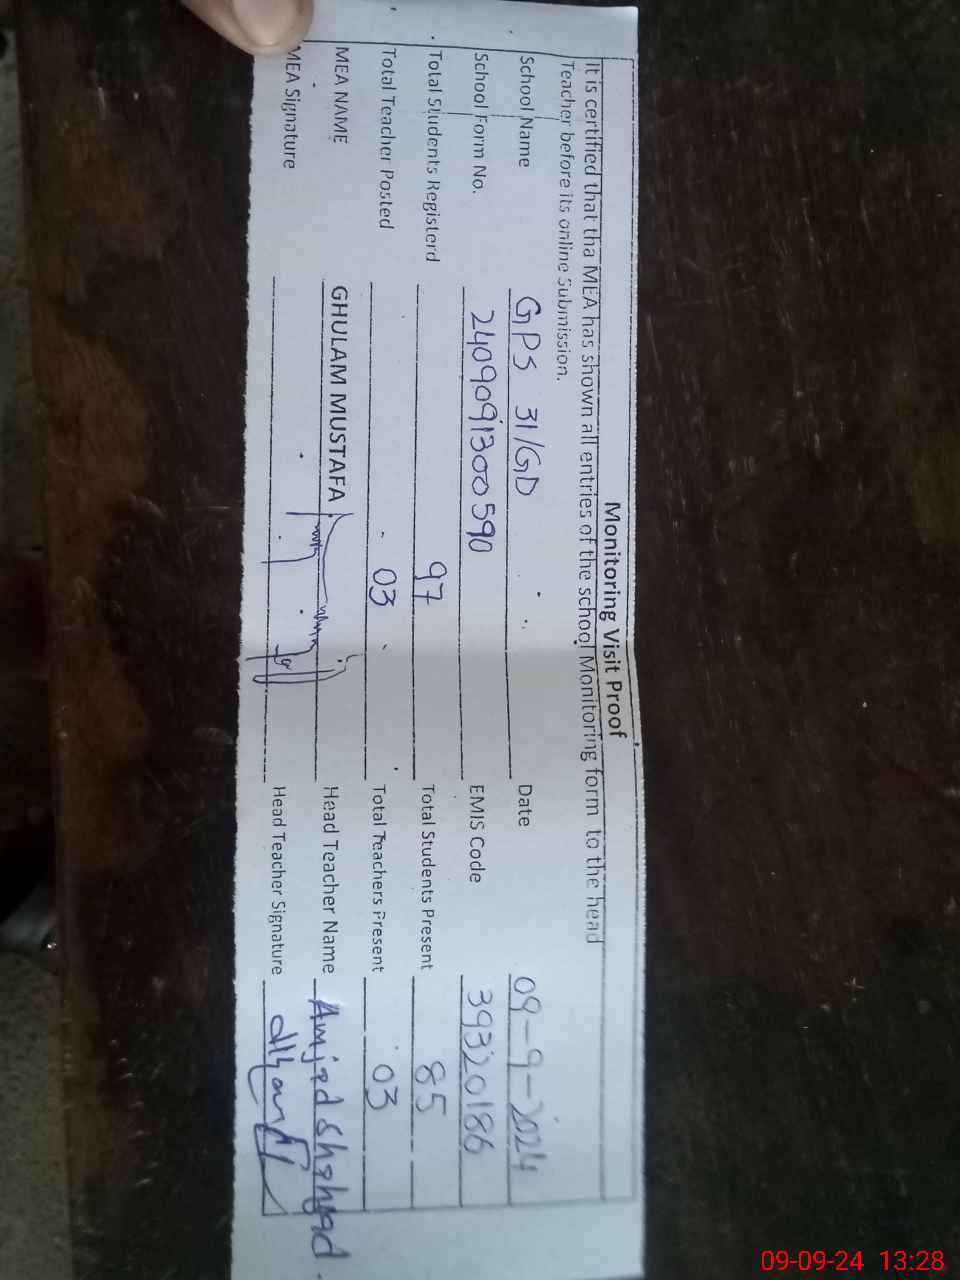 Monitoring Visit Proof
It is certified that tha MEA has shown all entries of the school Monitoring form to the head
Teacher before its online submission.
School Name GPS 31/GD Date 09-9-2024
School Form No. 2409091300590 EMIS Code 39320186
Total Students Registerd 97 Total Students Present 85
Total Teacher Posted 03 Total Teachers Present 03
MEA NAME GHULAM MUSTAFA Head Teacher Name Amjad Shahzad
MEA Signature Head Teacher Signature
09-09-24 13:28